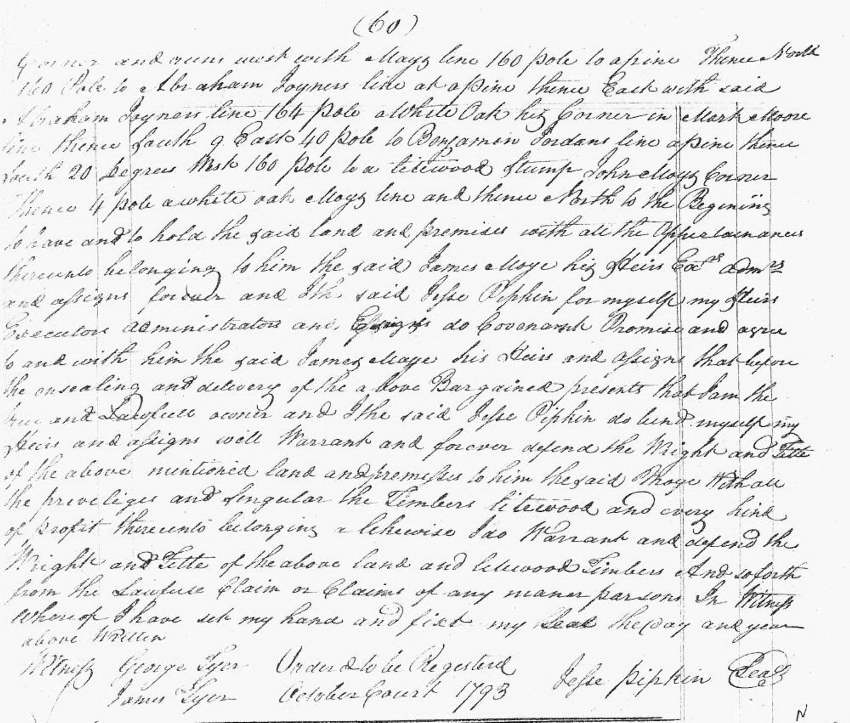 (60)
Corner and runs west with Moyz line 160 pole to a pine Thence North
160 Pole to Abraham Joyners line at a pine thence East with said
Abraham Joyners line 164 pole a White Oak hiz Corner in Mark Moore
line thence South 9 East 40 pole to Benjamin Jordans line a pine thence
South 20 Degrees West 160 pole to a litewood Stump John Moyz Corner
Thence 4 pole a white oak Moyz line and thence North to the Begining
to have and to hold the said land and premises with all the Appertainances
thereunto belonging to him the said James Moye hiz Heirs Exrs admrs
and assigns forever and I th said Jesse Pipkin for myself my Heirs
Executors administrators and do Covenant Promise and agree
to and with him the said James Moye his Heirs and assigns that before
the ensealing and delivery of the above Bargained presents that I am the
true and Lawfull owner and I the said Jesse Pipkin do bend myself my
Heirs and assigns will Warrant and forever defend the Wright and Title
of the above mentioned land and premisses to him the said Moye With all
the priveliges and Singular the Timbers litewood and every kind
of profit thereunto belonging a likewise I do Warrant and defend the
Wright and Title of the above land and litewood Timbers And so forth
from the Lawfull Claim or Claims of any maner parsons In Witness
Whereof I have set my hand and fixt my Seal the day and year
above Writen
Witness George Tyer Orderd to be Registerd Jesse Pipkin Seal
James Tyer October Court 1793
N